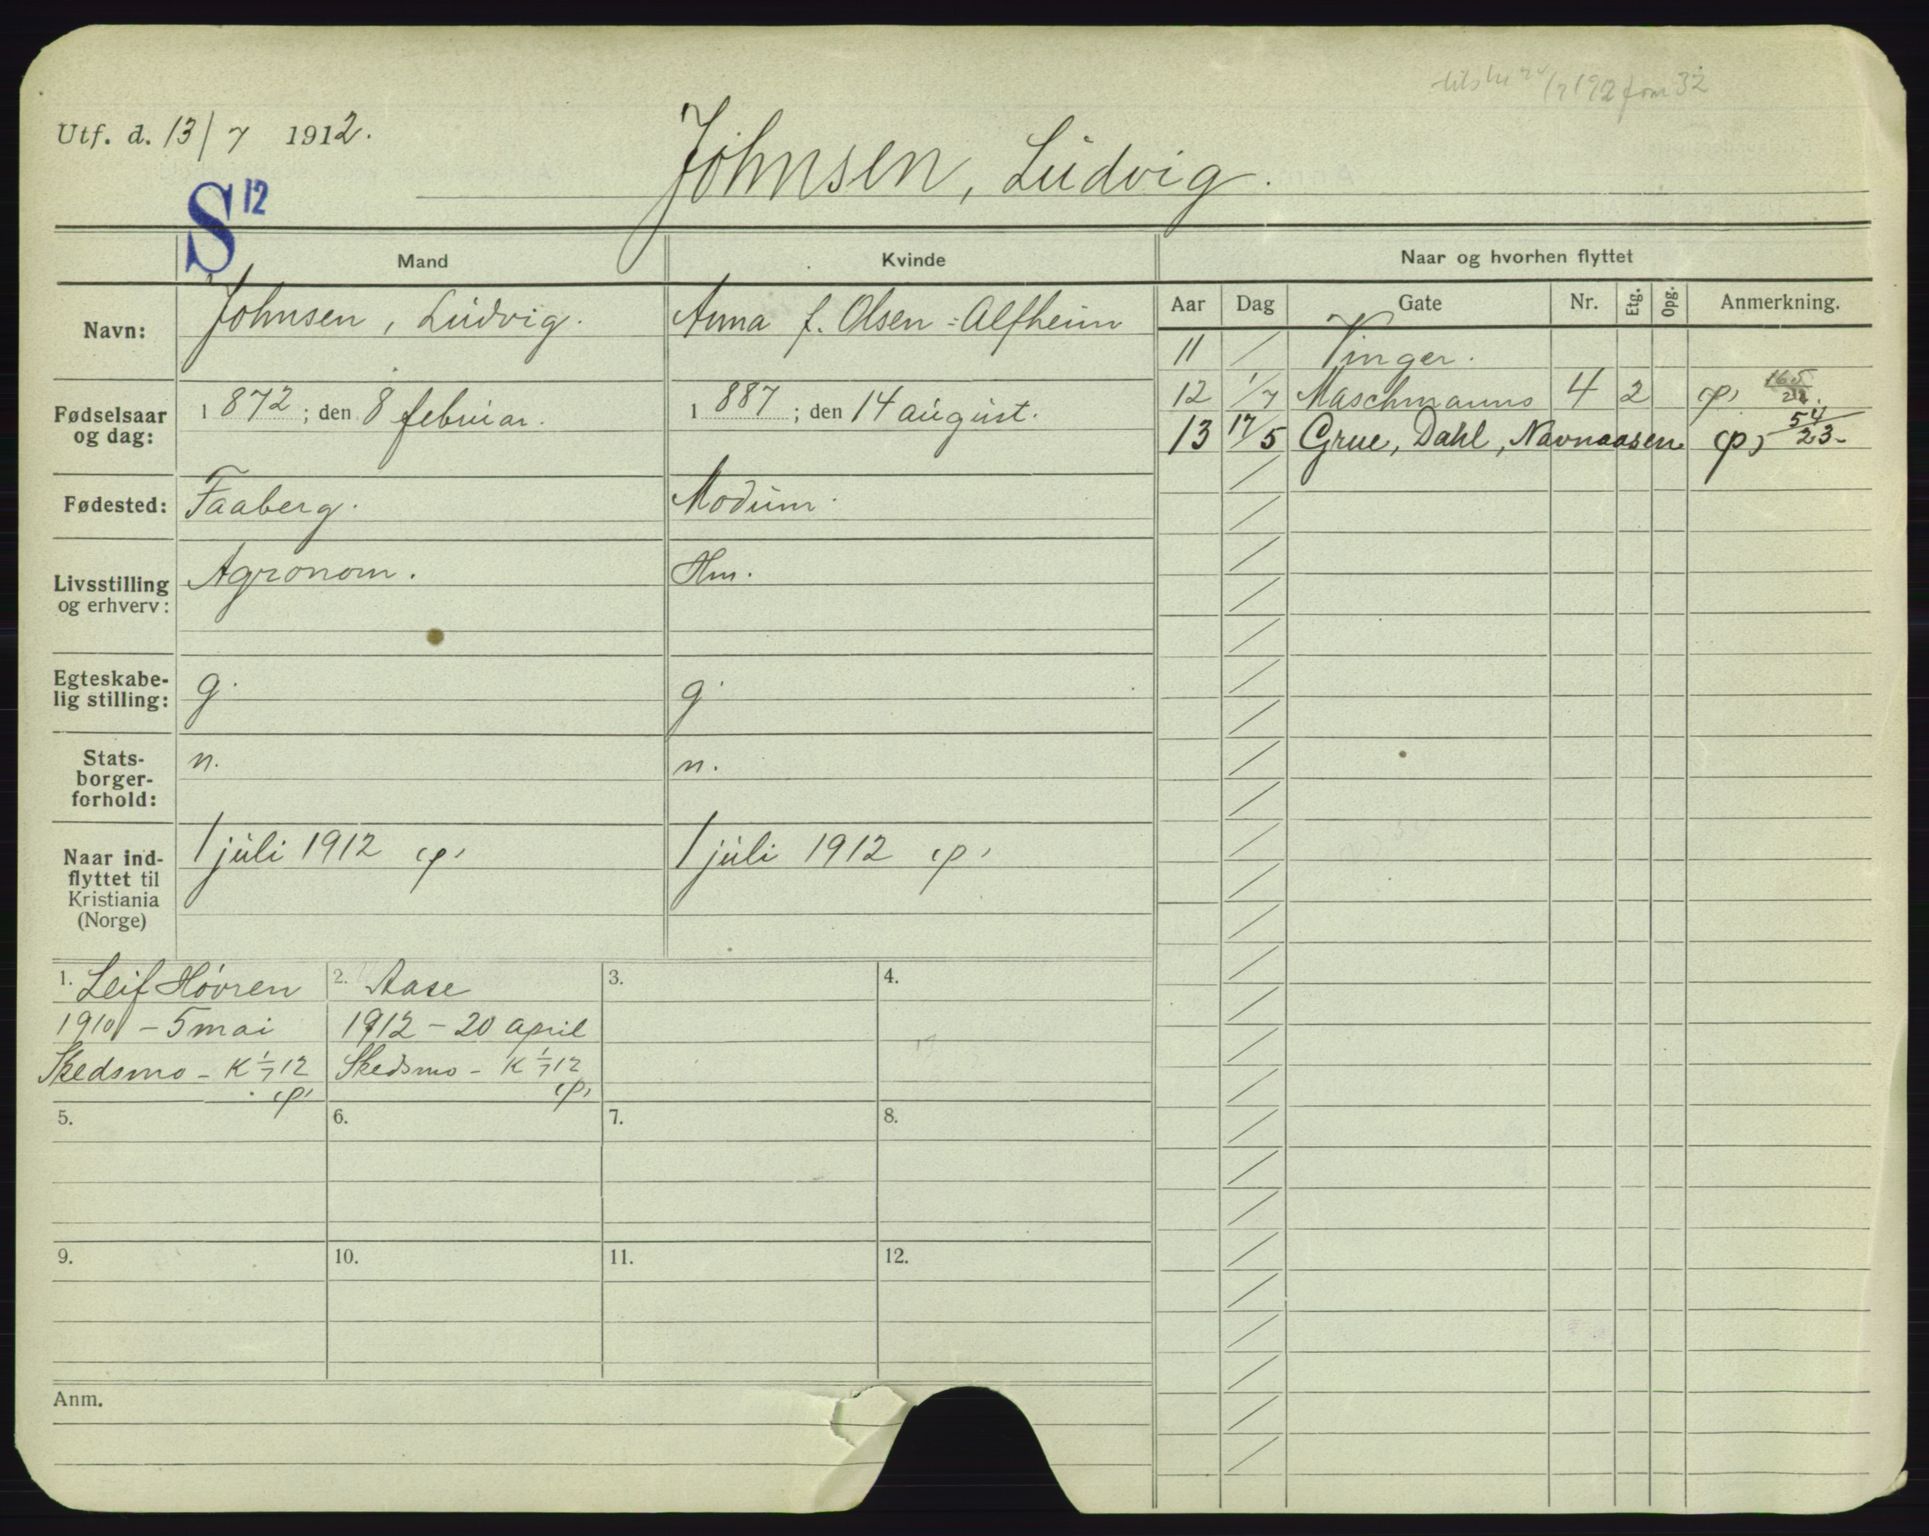 Utf. d. 13/7 1912.
S 12
Johnsen, Ludvig.
Mand
Kvinde
Naar og hvorhen flyttet
Navn:
Johnsen, Ludvig.
Anna f. Olsen-Alfheim
Aar Dag Gate Nr. Etg. Opg. Anmerkning.
11 / Vinger.
12 1/7 Maschmanns 4 2 165
13 17/5 Grue, Dahl, Navnaasen 54/23-
Fødselsaar og dag:
1872; den 8 februar.
1887; den 14 august.
Fødested:
Faaberg.
Modum.
Livsstilling og erhverv:
Agronom.
Hm.
Egteskabe-
lig stilling:
g.
g.
Stats-
borger-
forhold:
n.
n.
Naar ind-
flyttet til
Kristiania
(Norge)
1 juli 1912
1 juli 1912
1. Leif Høvren
1910 - 5 mai
Skedsmo - K 1/7 12
2. Aase
1912 - 20 april
Skedsmo - K 1/7 12
3.
4.
5.
6.
7.
8.
9.
10.
11.
12.
Anm.